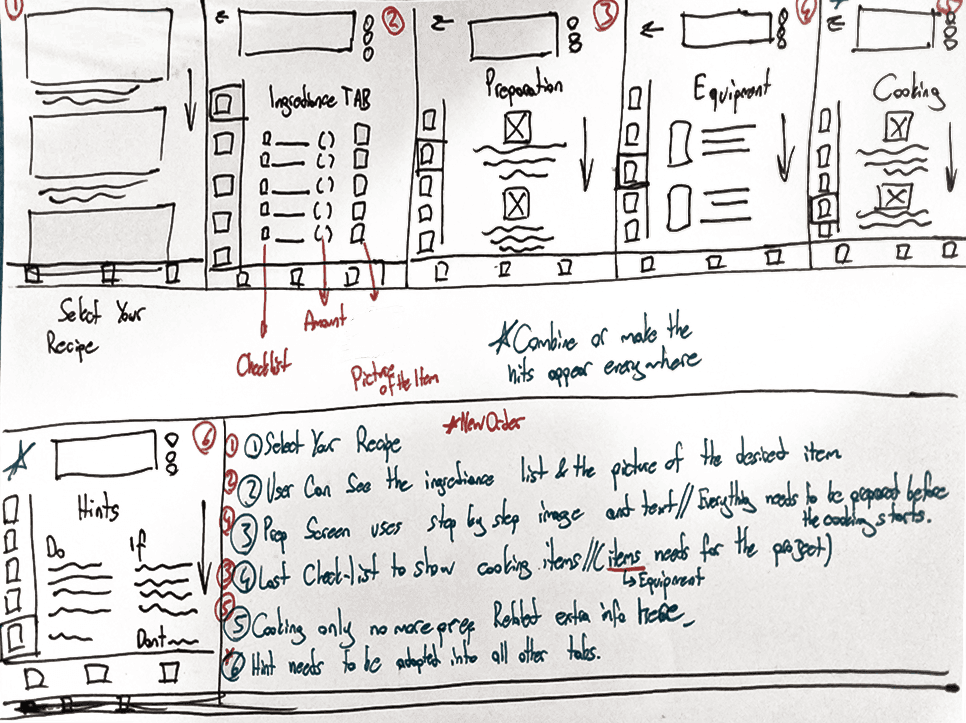 1
2
3
4
5
Ingrediance TAB
Preparation
Equipment
Cooking
Select Your
Recipe
Checklist
Amount
Picture
of the Item
*Combine or make the
hits appear everywhere
6
Hints
Do
If
Dont
*New Order
1 1 Select Your Recipe
2 2 User Can See the ingrediance list & the picture of the desired item
4 3 Prep Screen uses step by step image and text // Everything needs to be prepared before
the cooking starts.
3 4 Last Check-list to show cooking items // (items needs for the project)
↳ Equipment
5 5 Cooking only no more prep Related extra info here
* 6 Hint needs to be adapted into all other tabs.